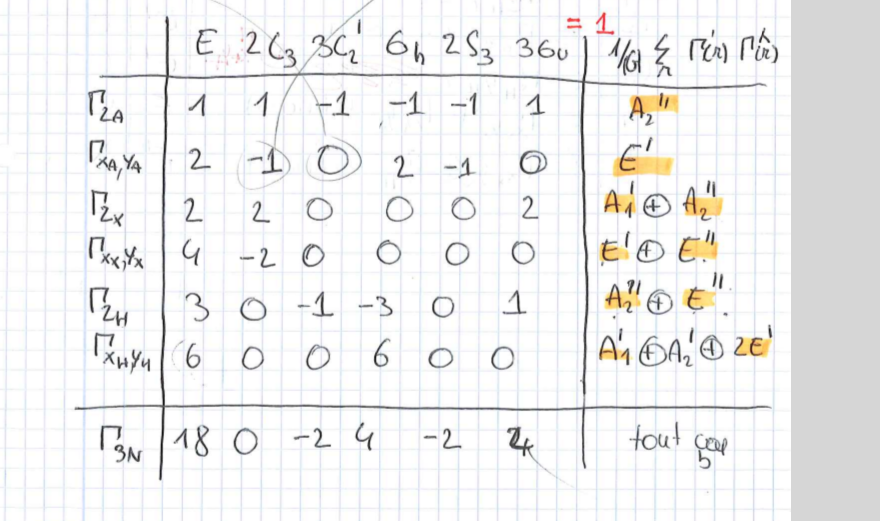 = 1
E 2C₃ 3C₂' 6h 2S₃ 36υ 1/(G) Σ r Γ'(r) Γʰ(r)
Γ2A 1 1 -1 -1 -1 1 A₂''
ΓxA,yA 2 -1 0 2 -1 0 E'
Γ2x 2 2 0 0 0 2 A₁' ⊕ A₂''
Γxx,yx 4 -2 0 0 0 0 E' ⊕ E''
Γ2H 3 0 -1 -3 0 1 A₂'' ⊕ E''
ΓxH,yH 6 0 0 6 0 0 A₁' ⊕ A₂' ⊕ 2E'
Γ3N 18 0 -2 4 -2 4 tout